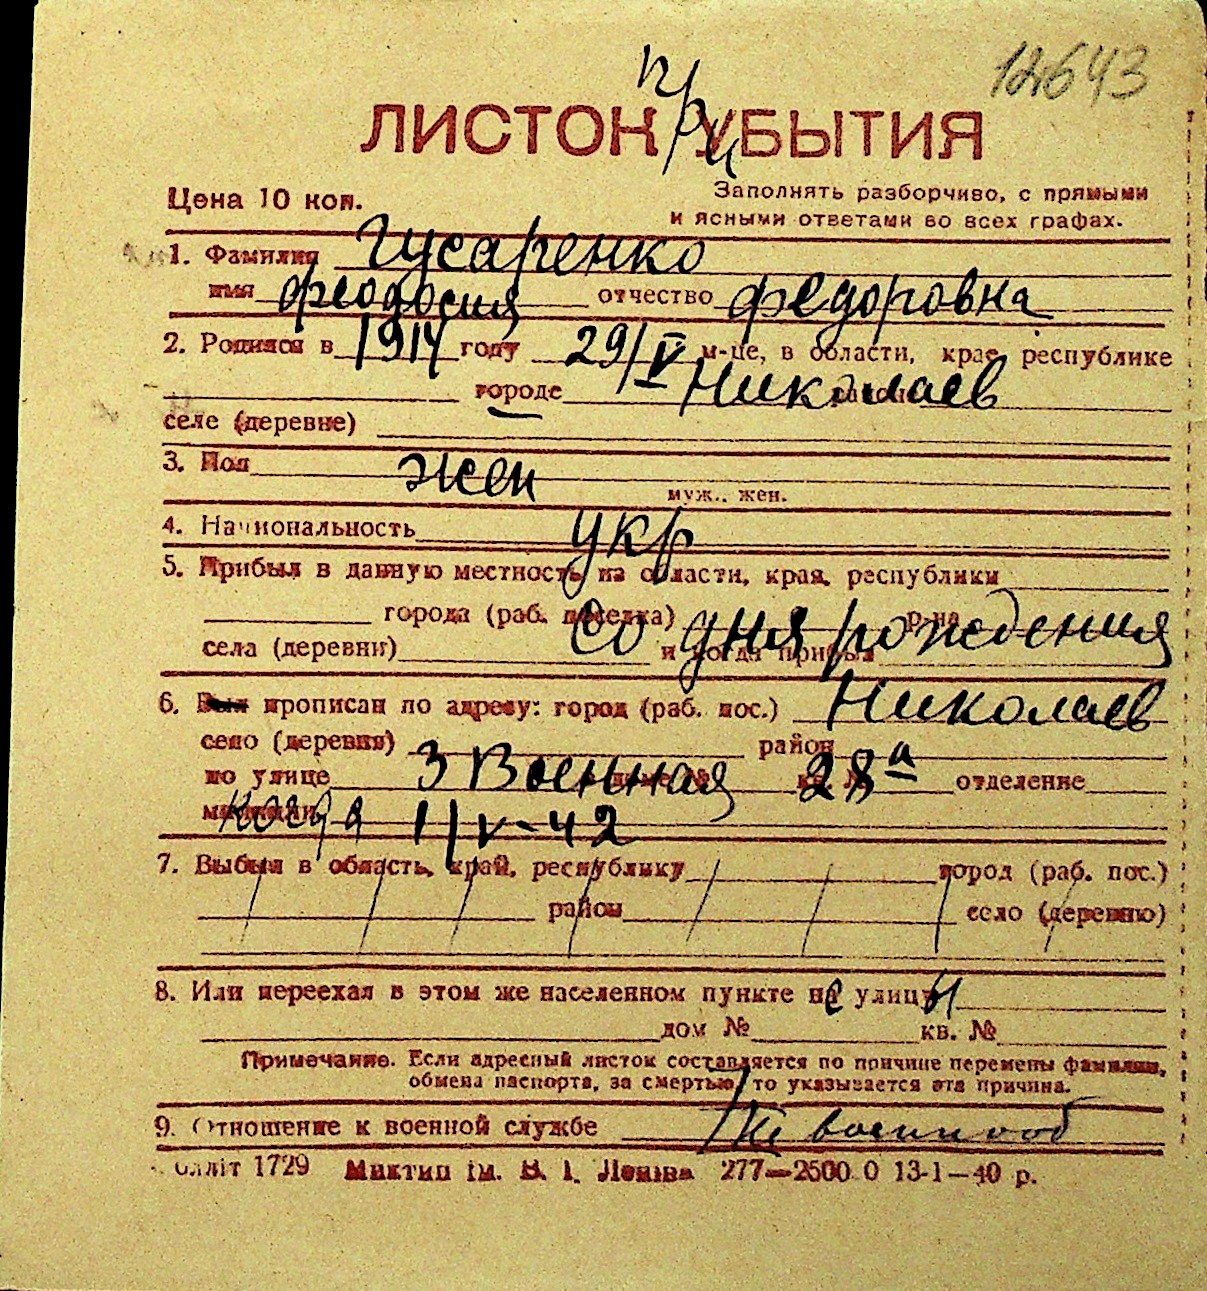 12643
При
ЛИСТОК УБЫТИЯ
Цена 10 коп.
Заполнять разборчиво, с прямыми
и ясными ответами во всех графах.
1. Фамилия Гусаренко
имя Феодосия отчество Федоровна
2. Родился в 1914 году 29/V м-це, в области, крае, республике
городе Николаев районе
селе (деревне)
3. Пол жен
муж., жен.
4. Национальность укр
5. Прибыл в данную местность из области, края, республики
города (раб. поселка) р-на
со дня рождения
села (деревни) и когда прибыл
6. Был прописан по адресу: город (раб. пос.) Николаев
село (деревня) район
по улице 3 Военная кв. № 28а отделение
милиции когда 1/V-42
7. Выбыл в область, край, республику город (раб. пос.)
район село (деревню)
8. Или переехал в этом же населенном пункте не улицы
дом № кв. №
Примечание. Если адресный листок составляется по причине перемены фамилии,
обмена паспорта, за смертью, то указывается эта причина.
9. Отношение к военной службе
1729 Миктип ім. В. І. Леніна 277—2500.0 13-1—40 р.